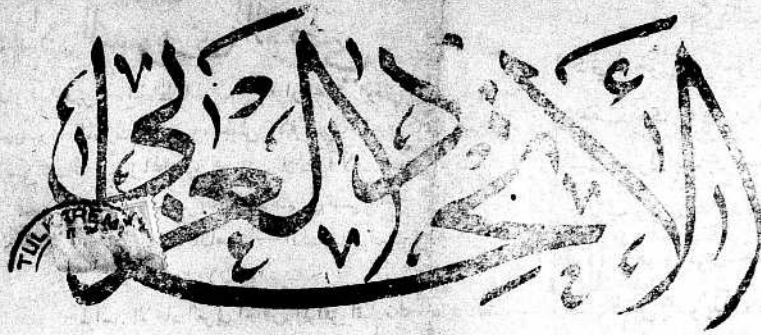 الاتحاد العربي
TUL